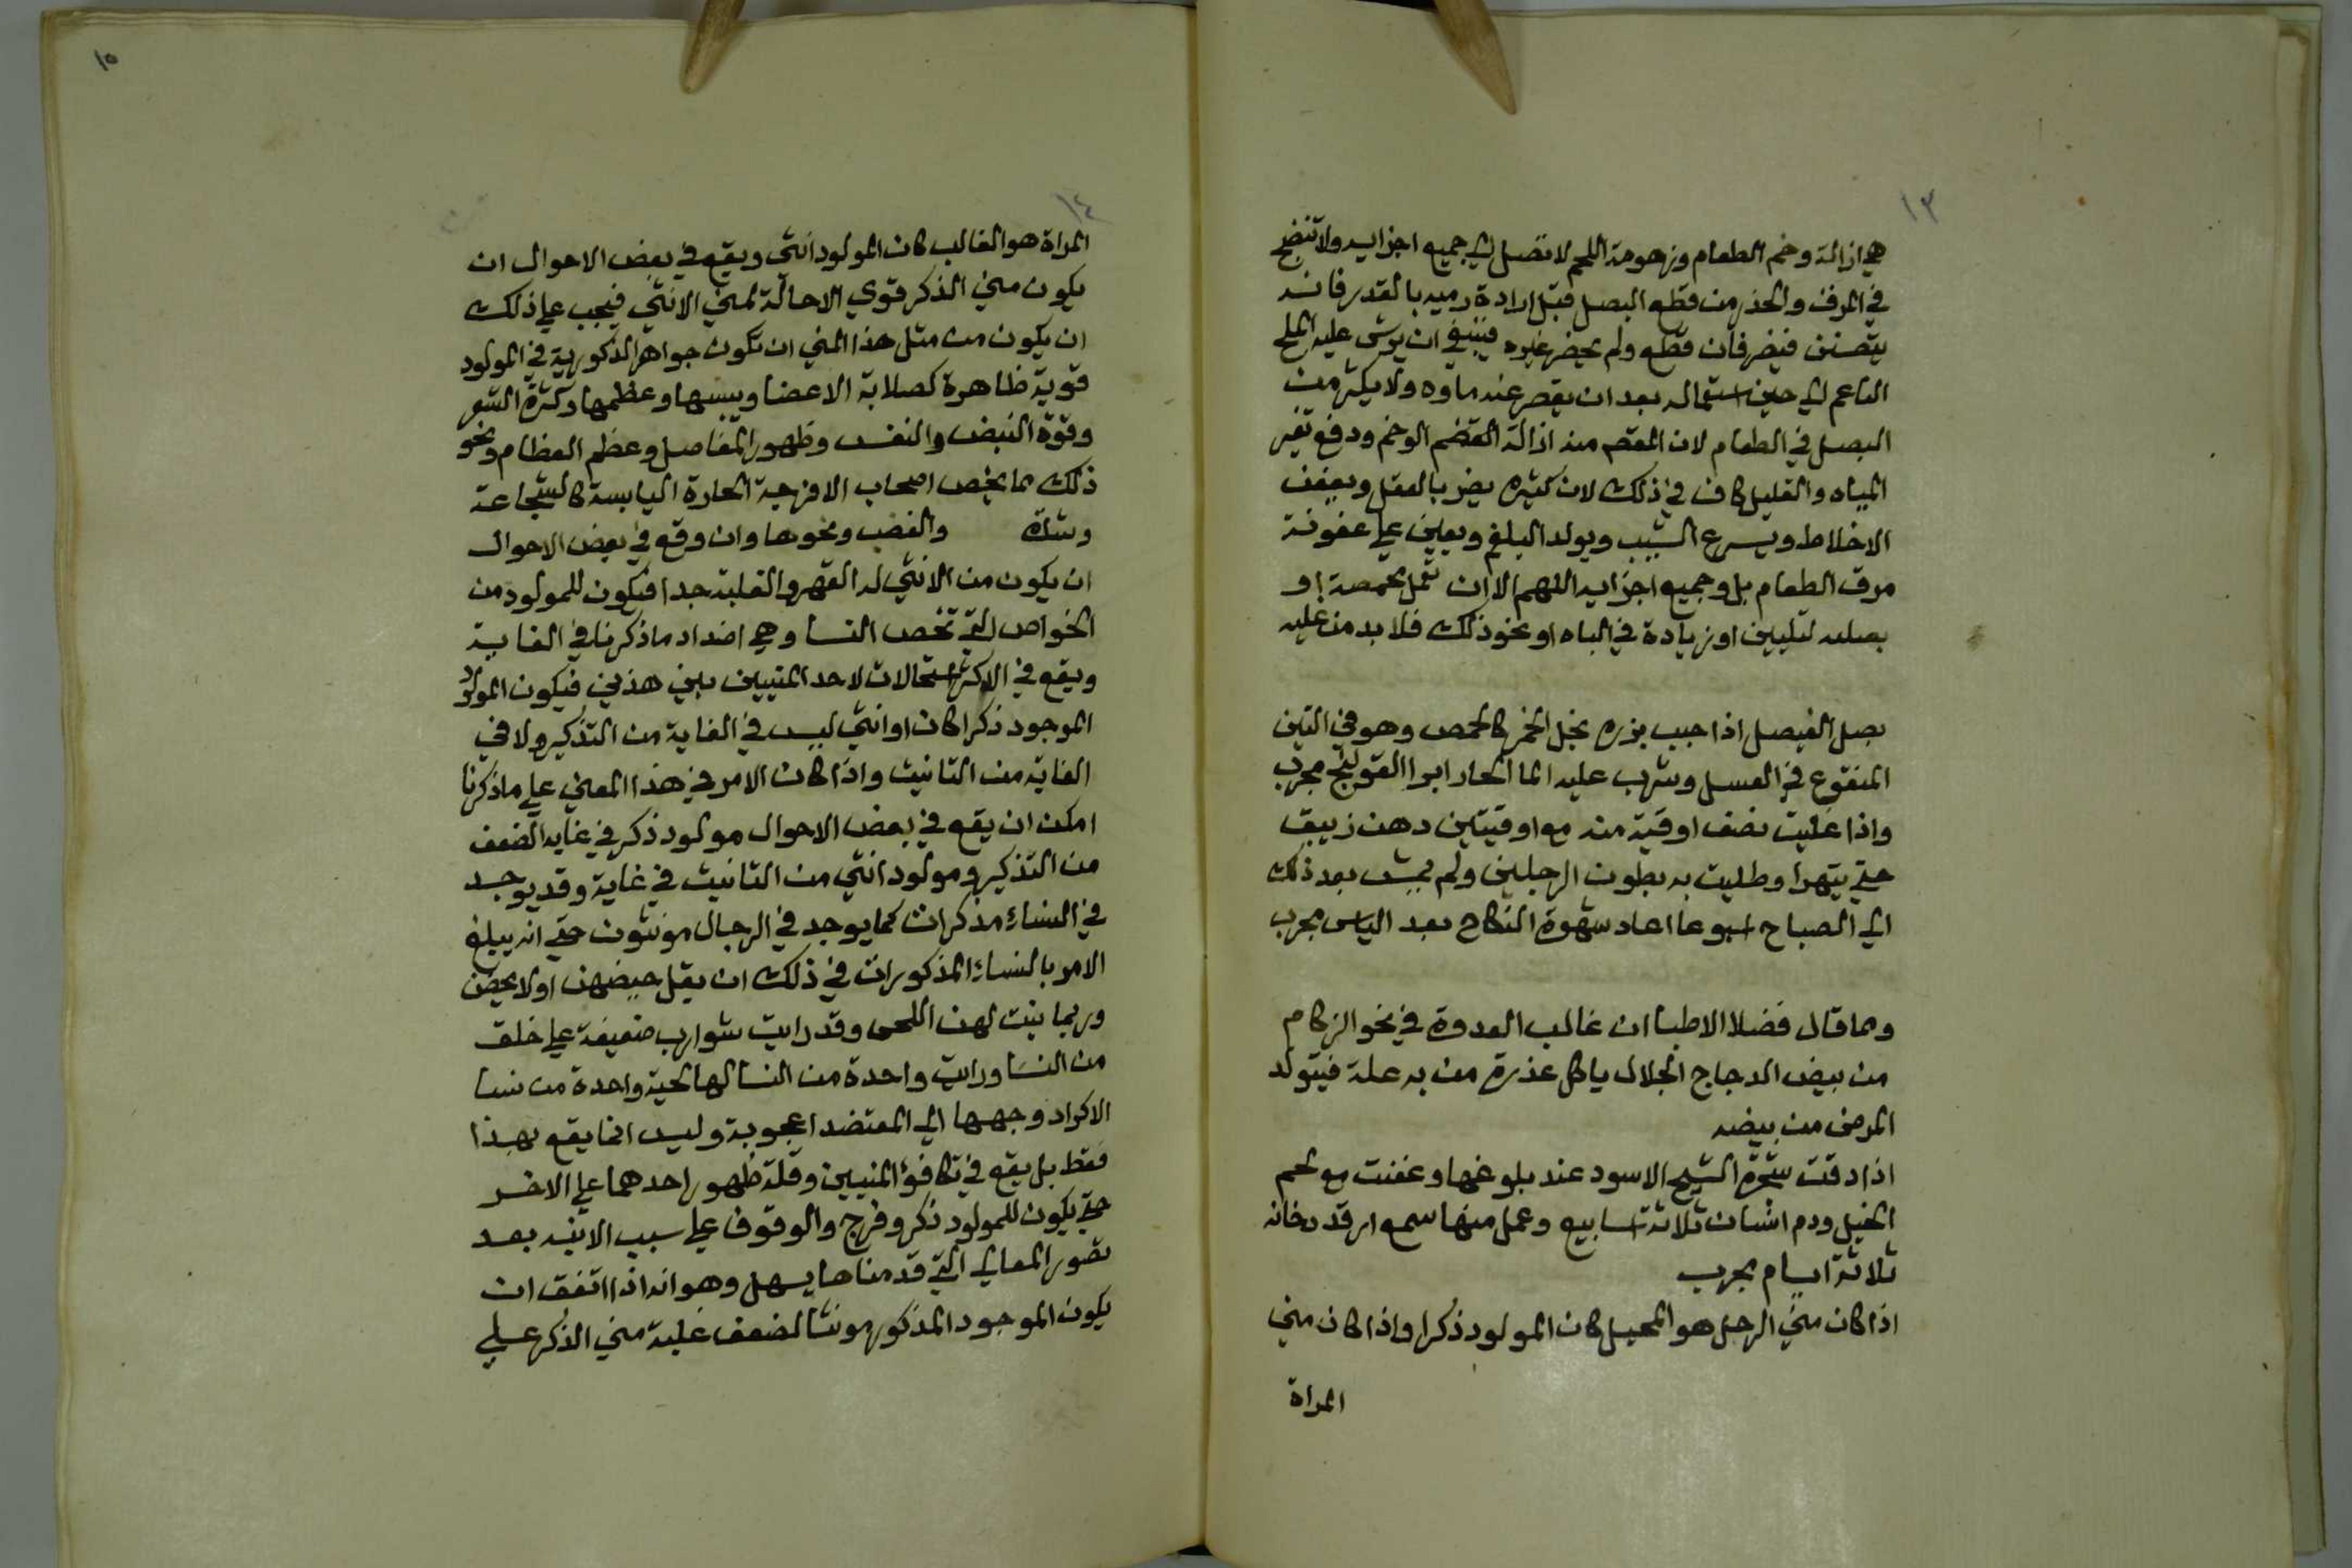 ١٣
هي ازالة وخم الطعام وزهومة اللحم لا تصل الي جميع اجزايه ولا تنضج
في المرق والحذر من قطع البصل قبل ارادة رميه بالقدر فانه
يتصنن فيضر فان قطع ولم يحضر غيره فينبغي ان يرش عليه الملح
الناعم الي حين استعماله بعد ان يعصر عنه ماوه ولا يكثر من
البصل في الطعام لان المقصد منه ازالة الطعم الوخم ودفع تغير
المياه والقليل كاف في ذلك لان كثيره يضر بالعقل ويعفن
الاخلاط ويسرع الشيب ويولد البلغم ويعين علي عفونة
مرق الطعام بل وجميع اجزايه اللهم الا ان تعمل بحمصة او
بصله لتليين او زيادة في الباه او نحو ذلك فلا بد من عليه
بصل الفيصل اذا حبب بزره بخل الخمر كالحمص وهو في التين
المنقوع في العسل وشرب عليه الما الحار ابرا القولنج مجرب
واذا غليت نصف اوقية منه مع اوقيتين دهن زيبق
حتي يتهرا وطليت به بطون الرجلين ولم يمش بعد ذلك
الي الصباح اسبوعا اعاد شهوة النكاح بعد الياس مجرب
ومما قال فضلا الاطبا ان غالب العدوة في نحو الزكام
من بيض الدجاج الجلال ياكل عذرة من به علة فيتولد
المرض من بيضه
اذا دقت شجرة الشيح الاسود عند بلوغها وعفنت مع لحم
الخيل ودم انسان ثلاثة اسابيع وعمل منها سمع ارقد دخانه
ثلاثة ايام مجرب
اذا كان مني الرجل هو المحيل كان المولود ذكرا واذا كان مني
المراة
١٤
المراة هو الغالب كان المولود انثي ويقع في بعض الاحوال ان
يكون مني الذكر قوي الاحالة لمني الانثي فيجب علي ذلك
ان يكون من مثل هذا المني ان تكون جواهر الذكورية في المولود
قوية ظاهرة كصلابة الاعضا ويبسها وعظمها وكثرة الشعر
وقوة النبض والنفس وظهور المفاصل وعظم العظام ونحو
ذلك مما يخص اصحاب الامزجة الحارة اليابسة كالشجاعة
وشدة والغضب ونحوها وان وقع في بعض الاحوال
ان يكون من الانثي له القهر والغلبة جدا فيكون للمولود من
الخواص التي تخص النسا وهي اضداد ما ذكرنا في الغاية
ويقع في الاكثر استحالات لاحد المنيين بين هذين فيكون المولود
الموجود ذكرا كان او انثي ليس في الغاية من التذكير ولا في
الغاية من التانيث واذا كان الامر في هذا المعني علي ما ذكرنا
امكن ان يقع في بعض الاحوال مولود ذكر في غاية الضعف
من التذكير ومولود انثي من التانيث في غاية وقد يوجد
في النساء مذكرات كما يوجد في الرجال مونثون حتي انه يبلغ
الامر بالنساء المذكورات في ذلك ان يقل حيضهن او لا يحضن
وربما نبت لهن اللحي وقد رايت شوارب ضعيفة علي خلق
من النسا ورايت واحدة من النسا لها لحية واحدة من نسا
الاكراد وجهها الي المعتضد اعجوبة وليس انما يقع بهذا
فقط بل يقع في تكافؤ المنيين وقلة ظهور احدهما علي الاخر
حتي يكون للمولود ذكر وفرج والوقوف علي سبب الابنه بعد
تصور المعاني التي قدمناها يسهل وهو انه اذا اتفق ان
يكون الموجود المذكور مونثا لضعف غلبة مني الذكر علي
١٥